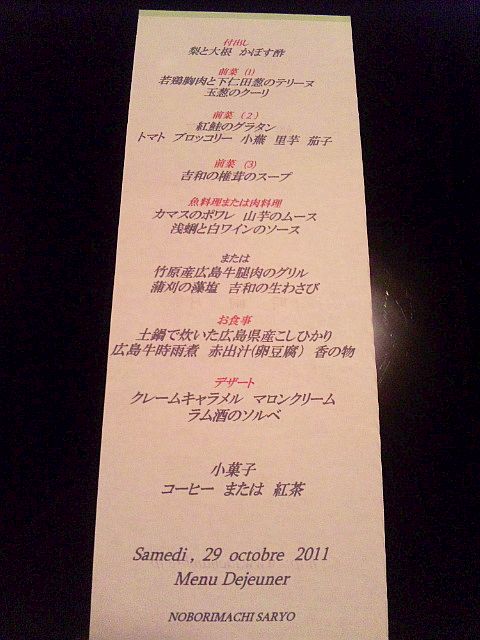 付出し
梨と大根　かぼす酢
前菜　(1)
若鶏胸肉と下仁田葱のテリーヌ
玉葱のクーリ
前菜　(2)
紅鮭のグラタン
トマト　ブロッコリー　小蕪　里芋　茄子
前菜　(3)
吉和の椎茸のスープ
魚料理または肉料理
カマスのポワレ　山芋のムース
浅蜊と白ワインのソース
または
竹原産広島牛腿肉のグリル
蒲刈の藻塩　吉和の生わさび
お食事
土鍋で炊いた広島県産こしひかり
広島牛時雨煮　赤出汁(卵豆腐)　香の物
デザート
クレームキャラメル　マロンクリーム
ラム酒のソルベ
小菓子
コーヒー　または　紅茶
Samedi , 29 octobre 2011
Menu Dejeuner
NOBORIMACHI SARYO